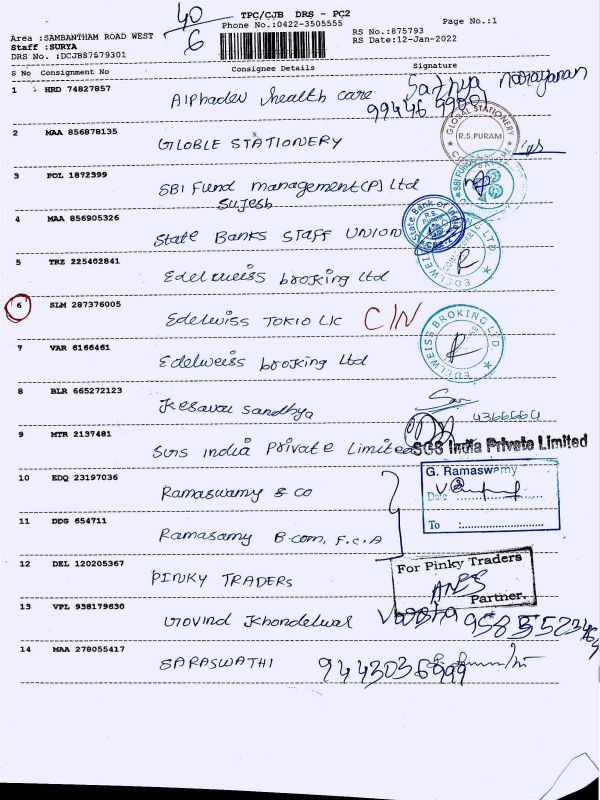 40
6
TPC/CJB DRS - PC2
Phone No.:0422-3505555
Page No.:1
Area :SAMBANTHAM ROAD WEST
Staff :SURYA
DRS No. :DCJB87579301
RS No.:875793
RS Date:12-Jan-2022
S No Consignment No Consignee Details Signature
1 HRD 74827857 Alphadev health care Sathya narayanan
99446 9900
2 MAA 856878135 GLOBLE STATIONERY GLOBAL STATIONERY R.S.PURAM
3 POL 1872399 SBI Fund management(P) Ltd
Sujesh
4 MAA 856905326 State Banks STAFF UNION State Bank of India
5 TRZ 225402841 Edelweiss broking Ltd EDELWEISS BROKING LTD
6 SLM 287376005 Edelwiss TOKIO LIC C/N
7 VAR 6166461 Edelweiss broking Ltd EDELWEISS BROKING LTD
8 BLR 665272123 Kesavau Sandhya
4366664
9 MTR 2137481 Sgs india Private Limited SGS India Private Limited
10 EDQ 23197036 Ramaswamy & co G. Ramaswamy
Date
To :
11 DDG 654711 Ramasamy B.com, F.C.A
12 DEL 120205367 PINKY TRADERS For Pinky Traders
Partner.
13 VPL 938179630 Govind Khandelwal
14 MAA 278055417 SARASWATHI 9443036999